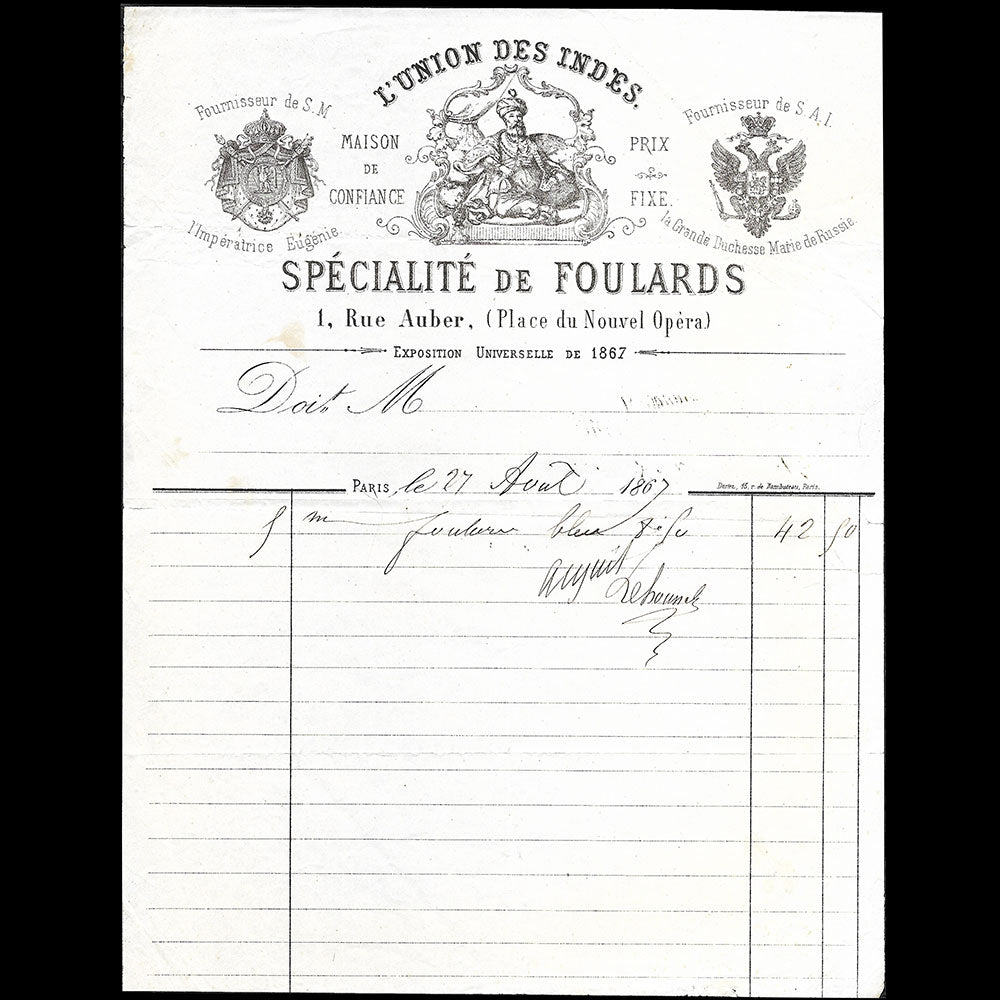 L'UNION DES INDES.
Fournisseur de S. M
l'Impératrice Eugénie.
MAISON
DE
CONFIANCE
PRIX
FIXE.
Fournisseur de S. A. I.
la Grande Duchesse Marie de Russie.
SPÉCIALITÉ DE FOULARDS
1, Rue Auber, (Place du Nouvel Opéra)
EXPOSITION UNIVERSELLE DE 1867
Doit M
PARIS, le 27 Aout 1867
5 m foulard bleu 8.50 42 50
acquit